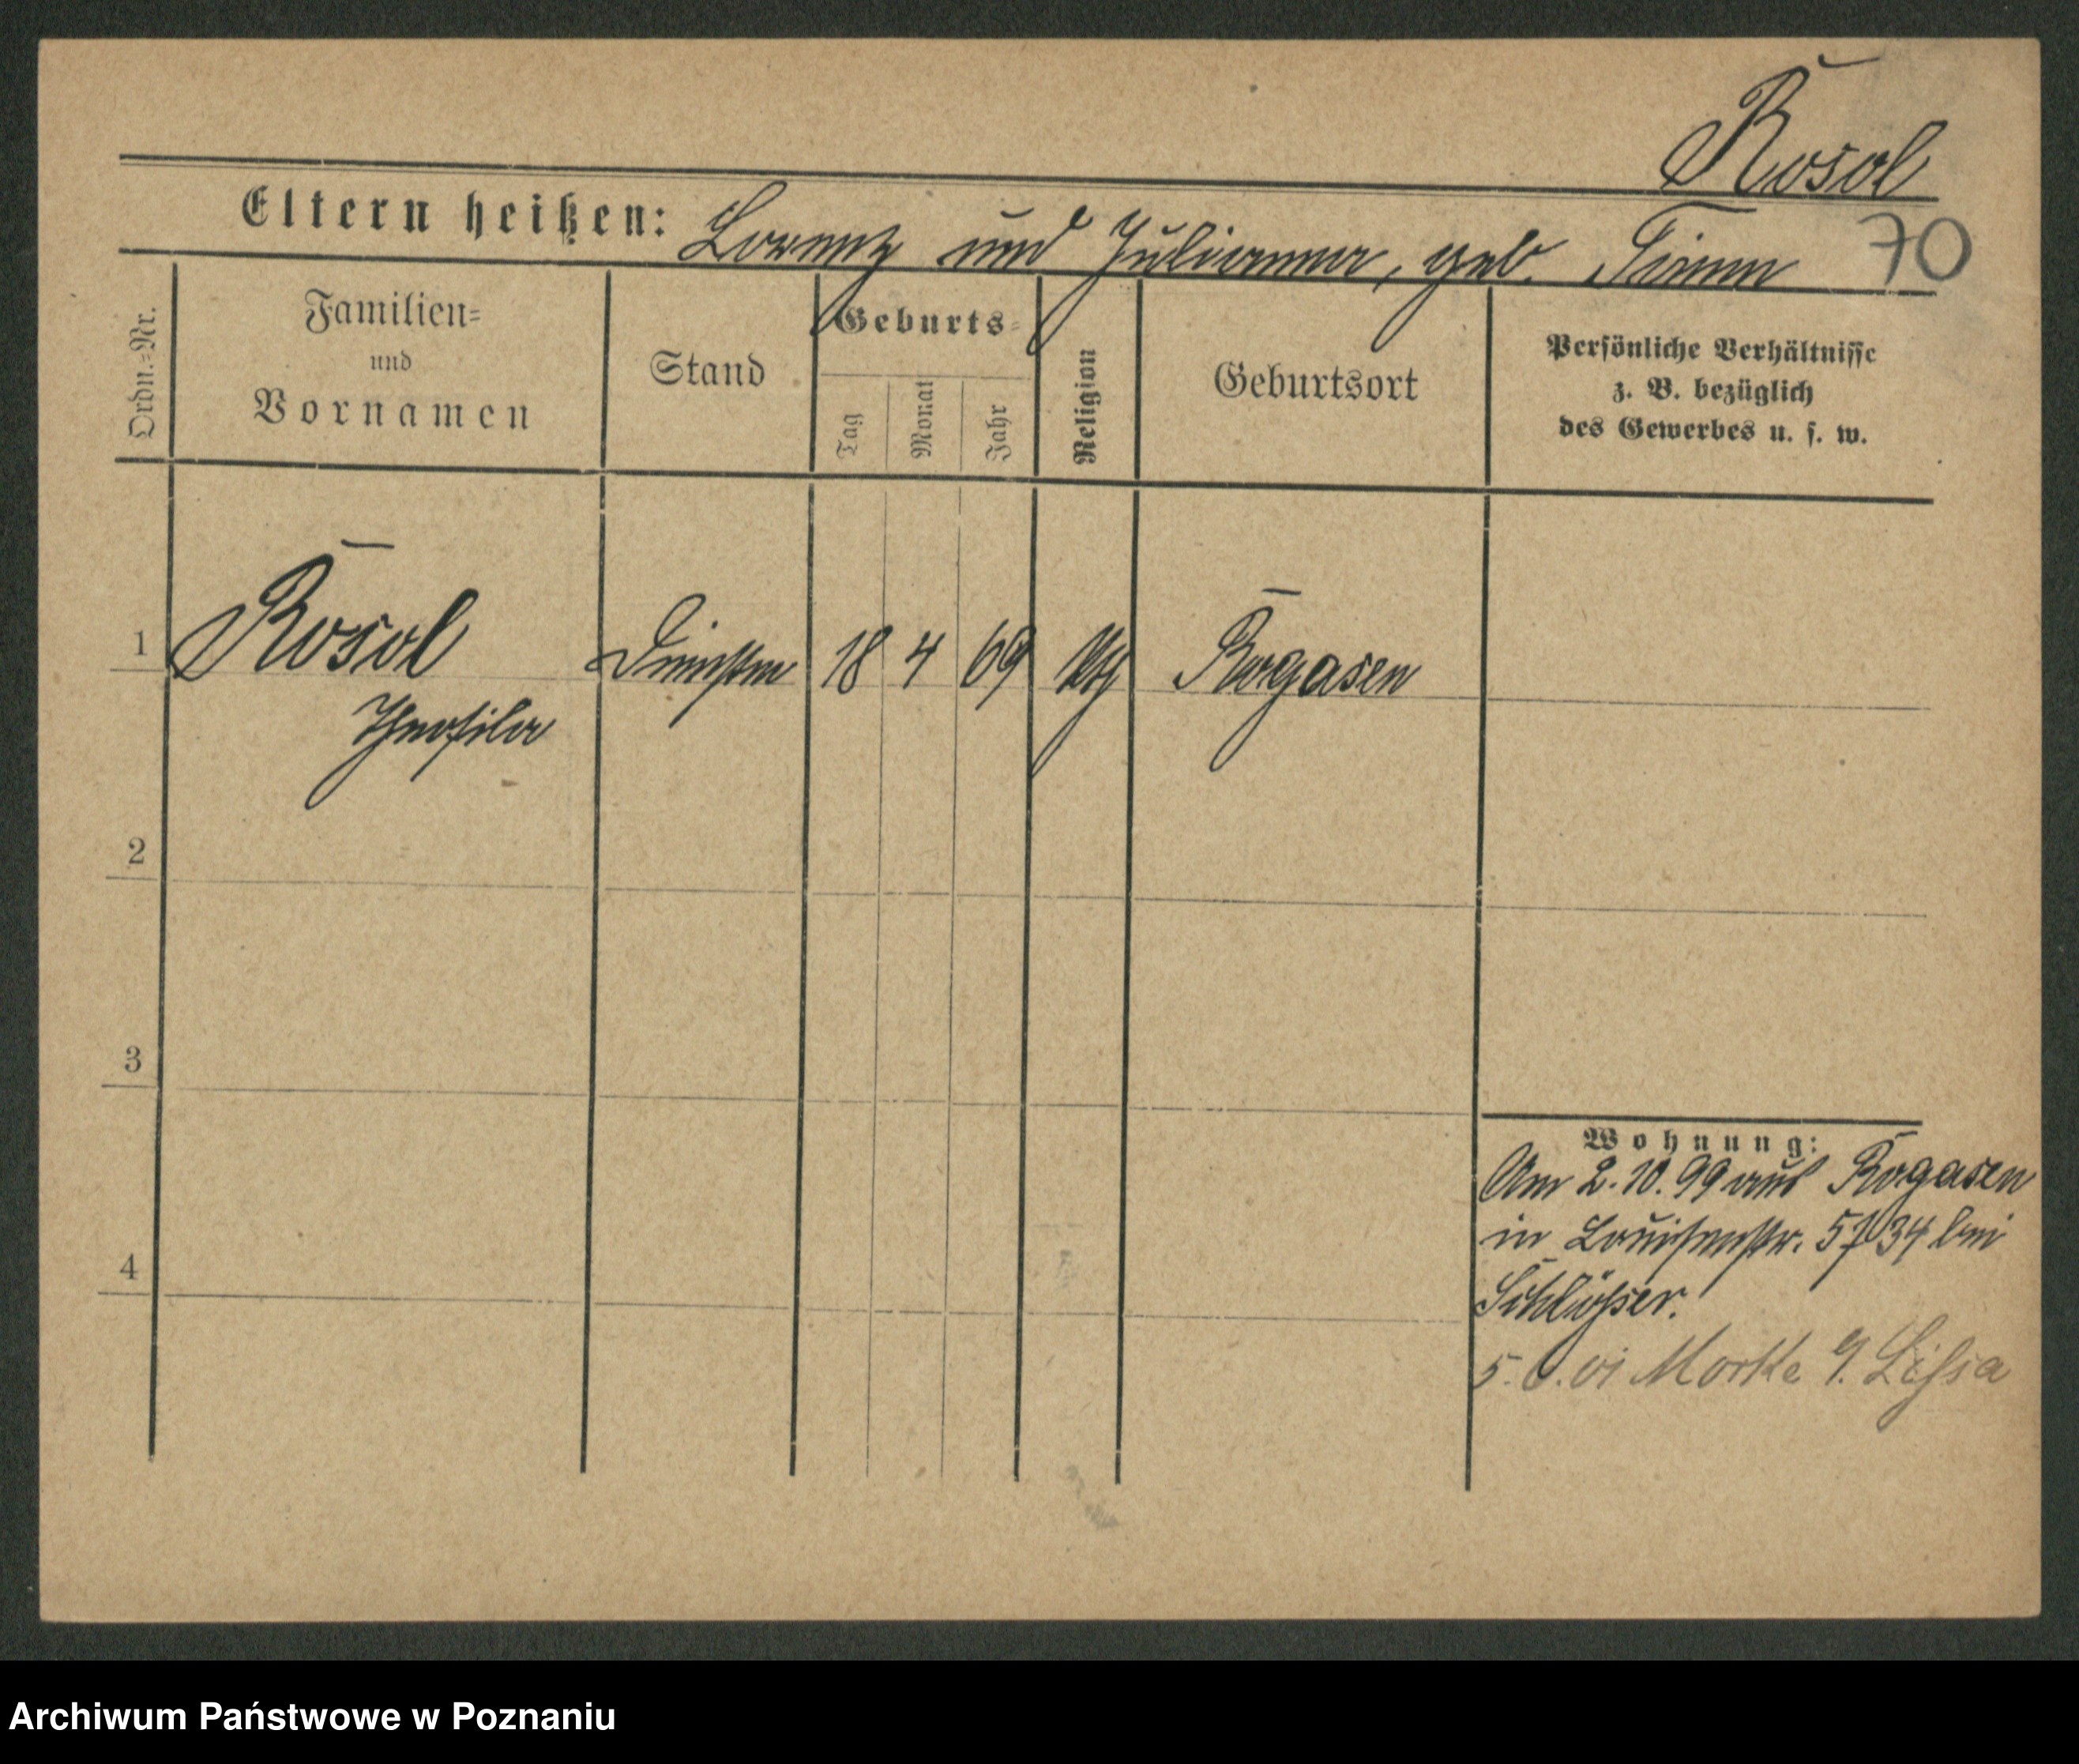 Rosol
Eltern heißen: Lorenz und Julianna, geb. Timm 70
Ordn.=Nr.
Familien=
und
Vornamen
Stand
Geburts=
Tag
Monat
Jahr
Religion
Geburtsort
Persönliche Verhältnisse
z. B. bezüglich
des Gewerbes u. s. w.
1 Rosol 18 4 69 kth Rogasen
Theofila
2
3
4
Wohnung:
Am 2.10.99 aus Rogasen
in Louisenstr. 5 34 bei
Schlösser.
5. Lissa
Archiwum Państwowe w Poznaniu